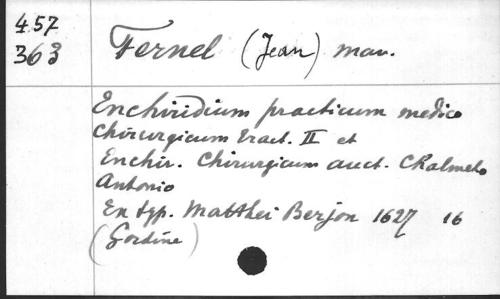 457
363
Fernel (Jean) man.
Enchiridium practicum medico
chirurgicum tract. II et
Enchir. Chirurgicum auct. Chalmeto
Antonio
Ex typ. Matthei Berjon 1627 16
(Gordine)